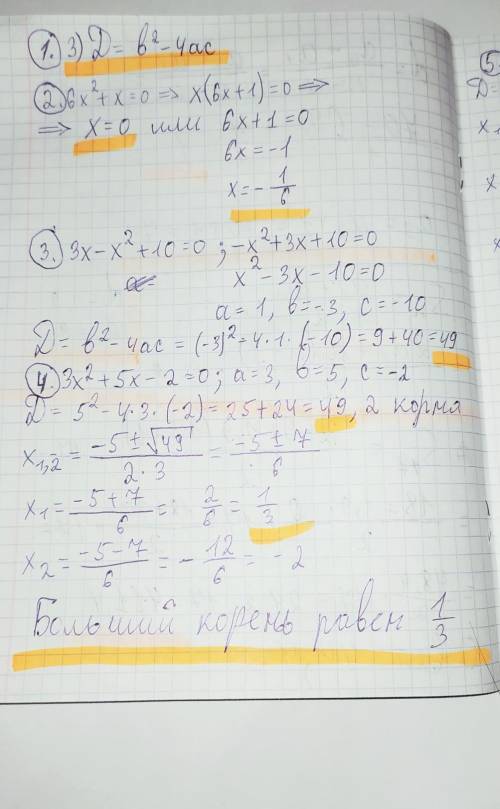 1. 3) D = b² - 4ac
2. 6x² + x = 0 => x(6x+1) = 0 =>
=> x = 0 или 6x + 1 = 0
6x = -1
x = - 1/6
3. 3x - x² + 10 = 0 ; -x² + 3x + 10 = 0
x² - 3x - 10 = 0
a = 1, b = -3, c = -10
D = b² - 4ac = (-3)² - 4·1·(-10) = 9 + 40 = 49
4. 3x² + 5x - 2 = 0; a = 3, b = 5, c = -2
D = 5² - 4·3·(-2) = 25 + 24 = 49, 2 корня
x1,2 = (-5 ± √49)/(2·3) = (-5 ± 7)/6
x1 = (-5 + 7)/6 = 2/6 = 1/3
x2 = (-5 - 7)/6 = - 12/6 = -2
Больший корень равен 1/3
5.
D =
x1
x